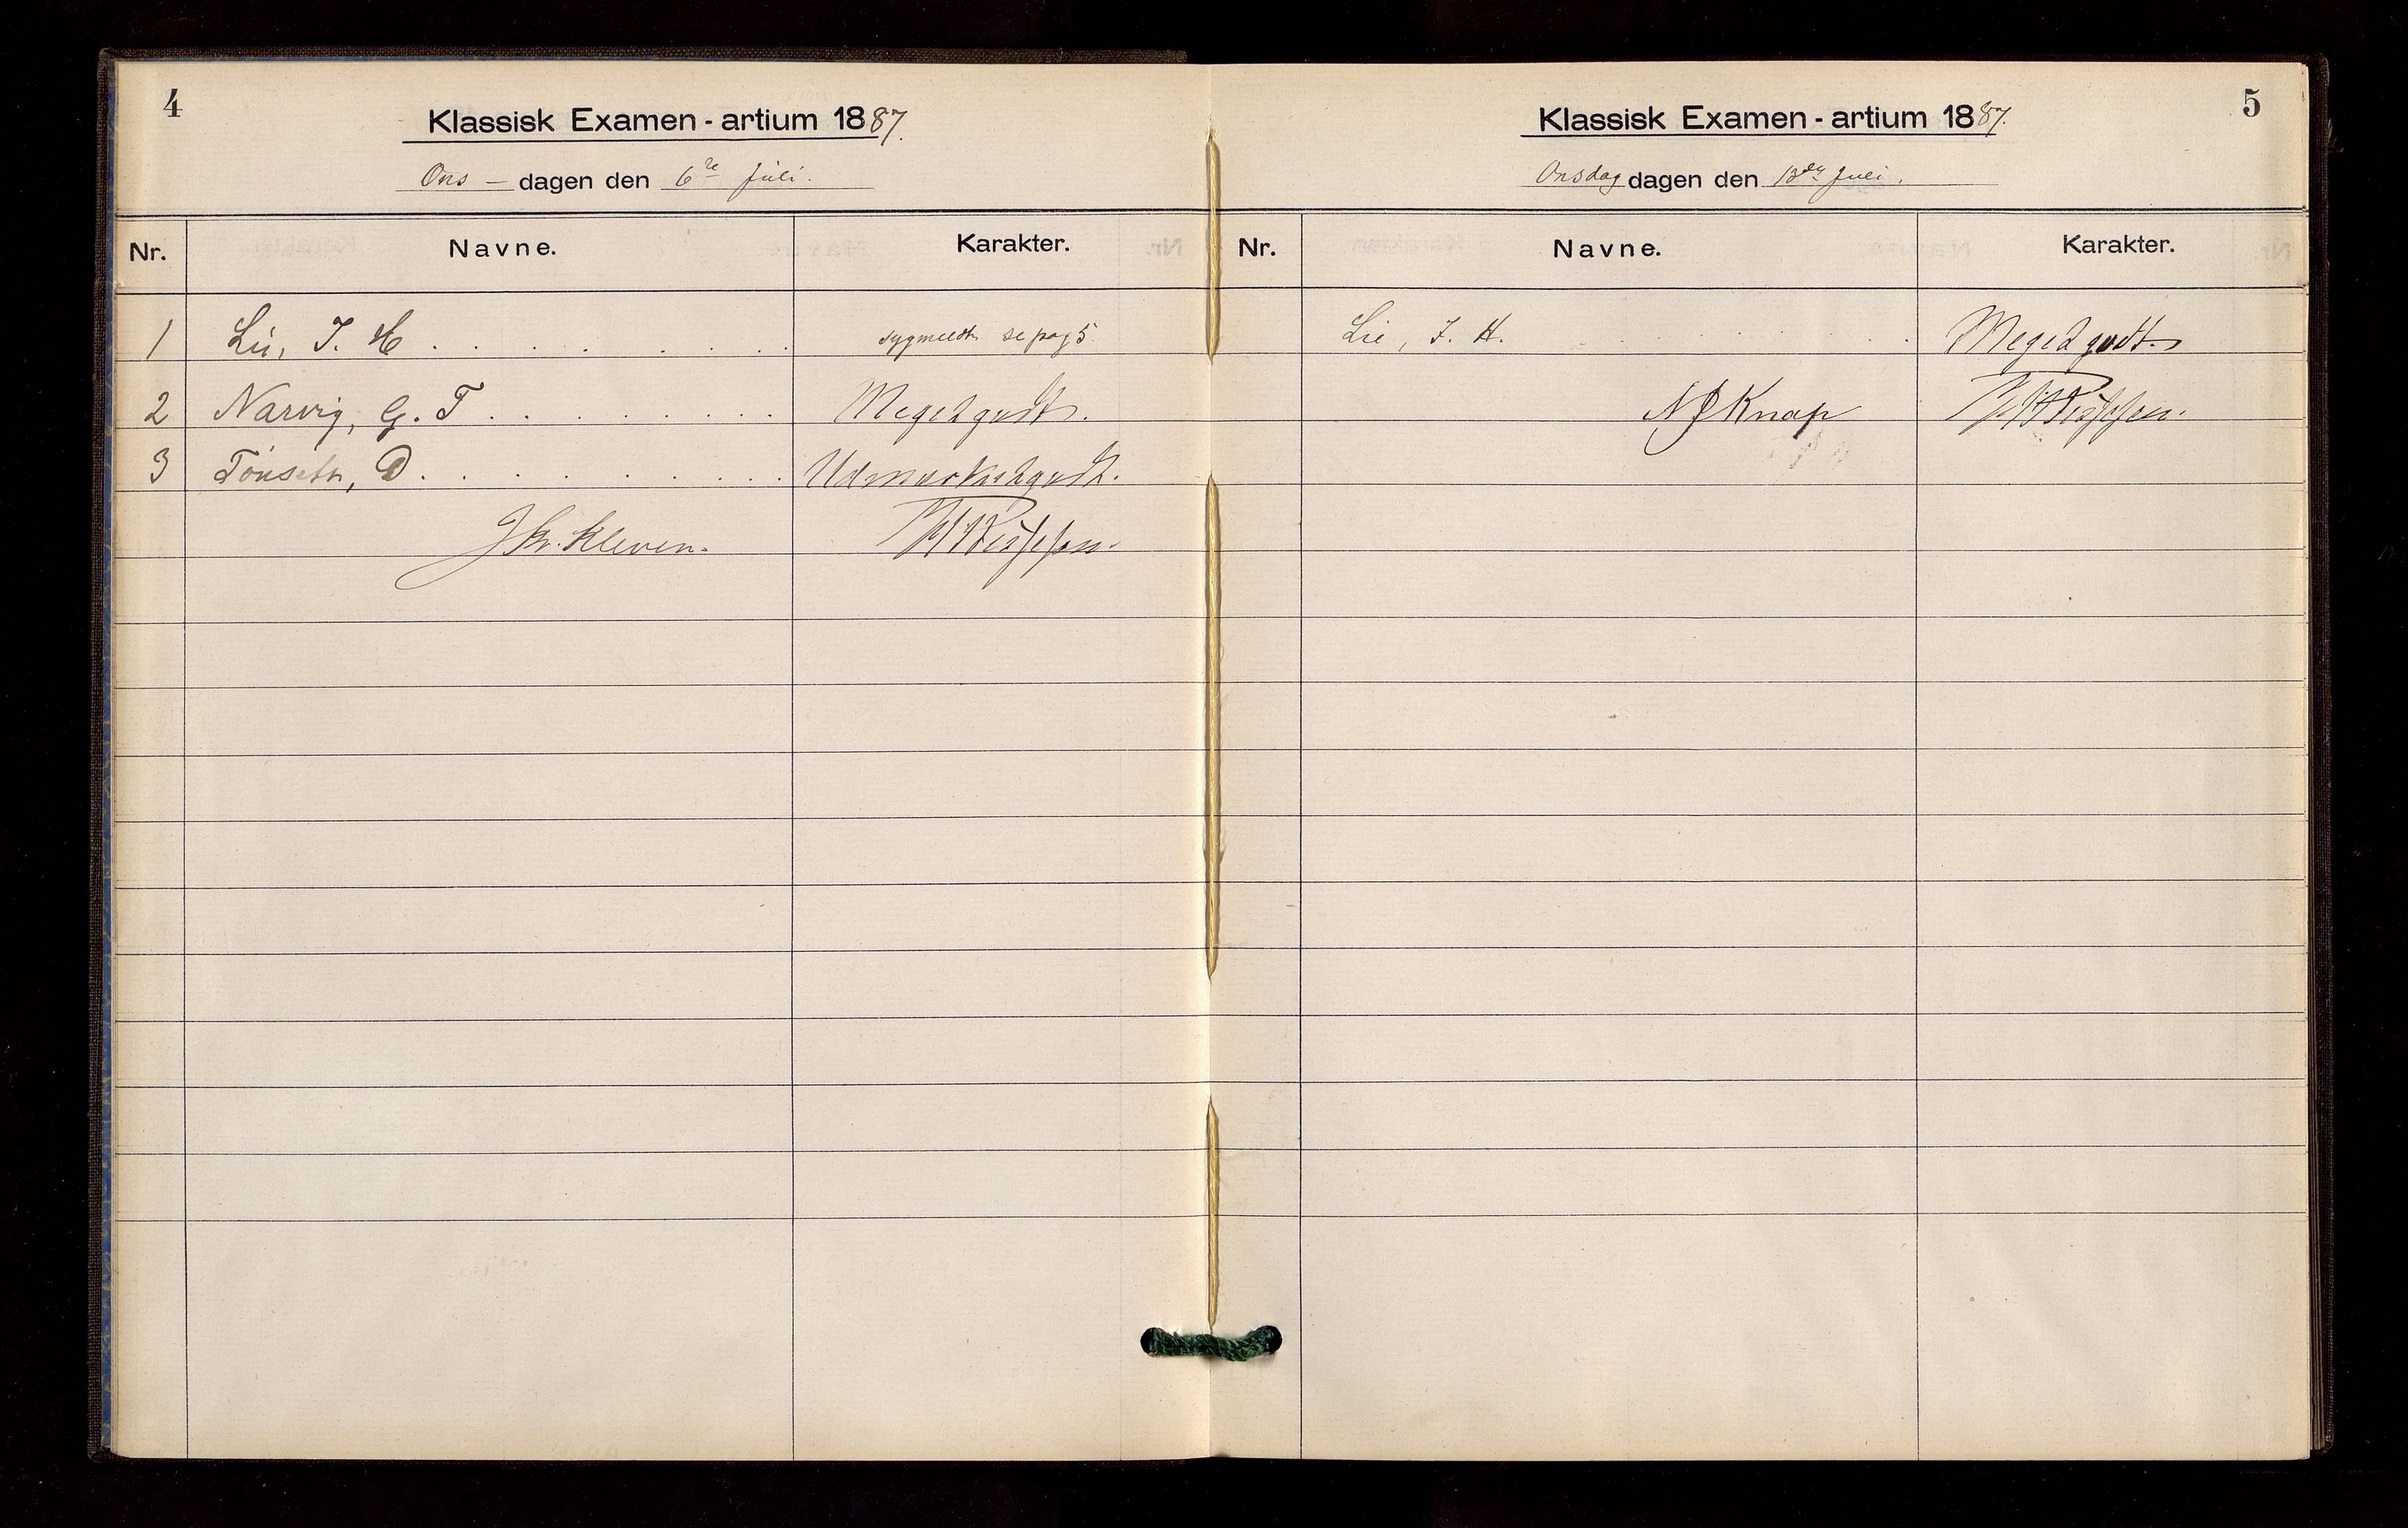 4
Klassisk Examen - artium 1887.
Ons - dagen den 6te Juli.
Nr. Navne. Karakter.
1 Lie, J. H. . . . . . . . sygmeldt se pag 5.
2 Narvig, G. T. . . . . . . . . Meget godt.
3 Tönseth, D. . . . . . . . . Udmærket godt.
J Kr. Kleven.
5
Klassisk Examen - artium 1887.
Onsdag dagen den 13de Juli.
Nr. Navne. Karakter.
Lie, J. H. . . . . . Meget godt.
N J Knap